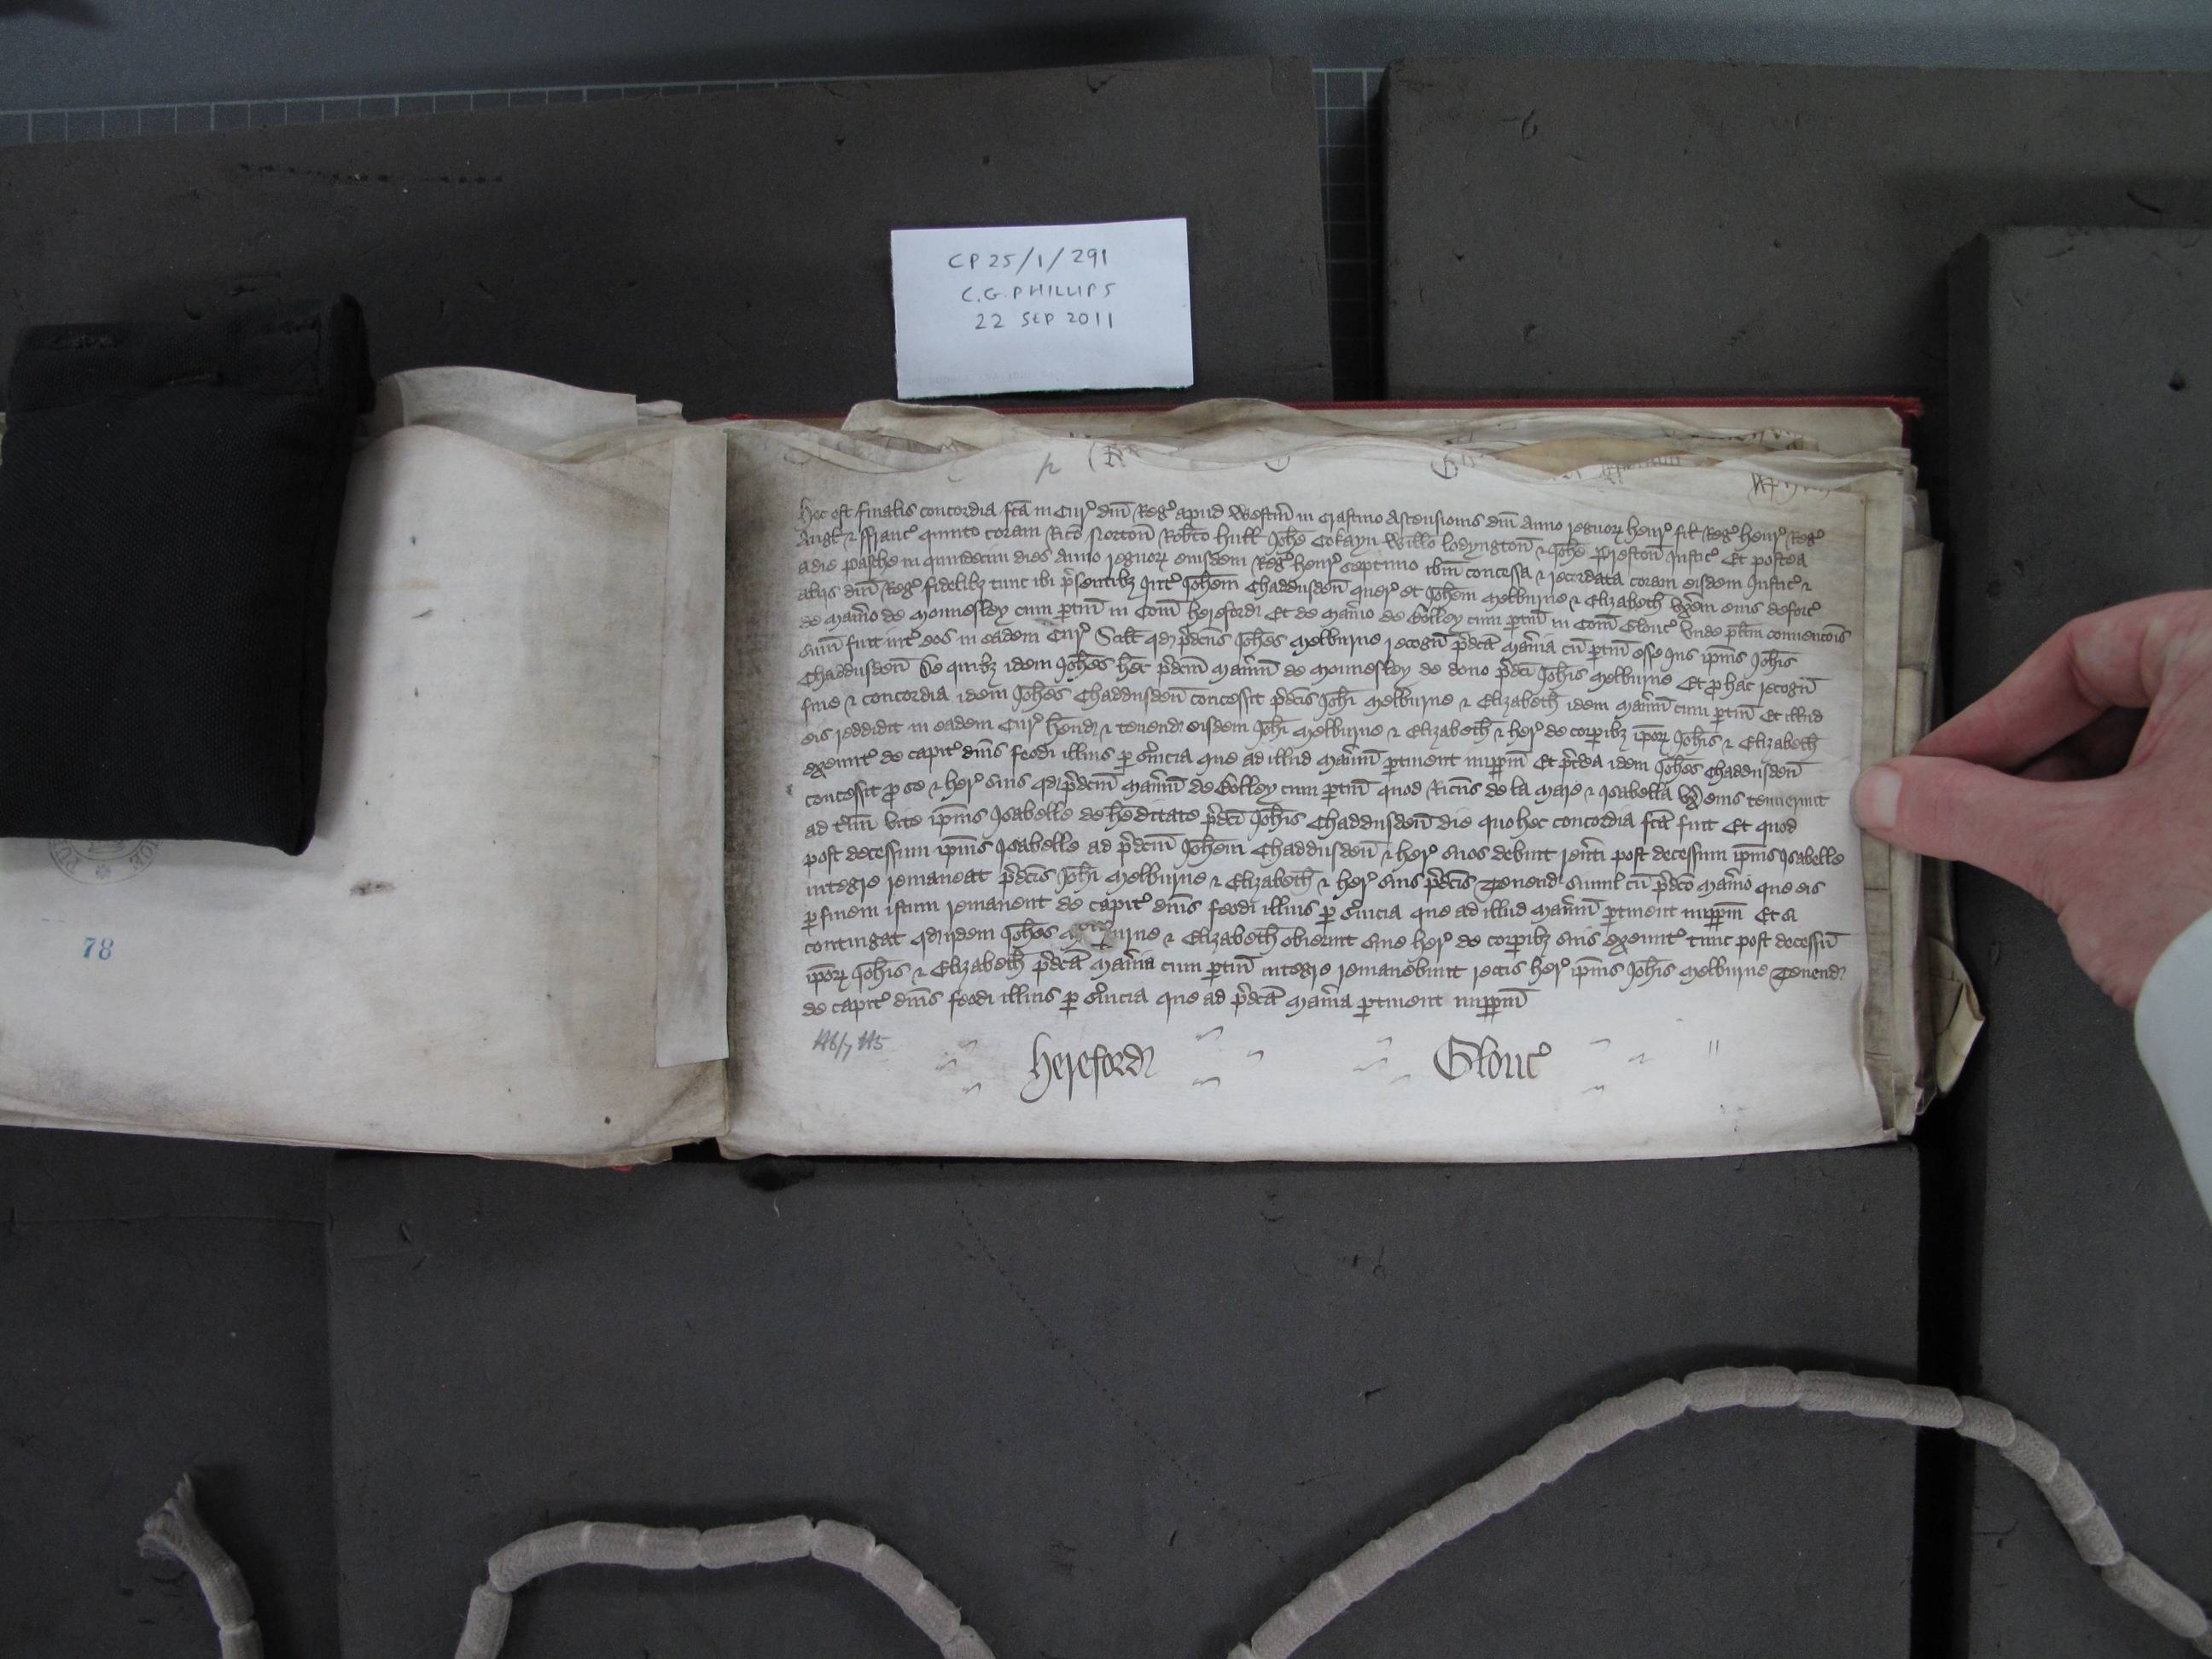 CP 25/1/291
C.G. PHILLIPS
22 SEP 2011
Hec est finalis concordia fc̄a in Cur' dn̄i Reg' apud Westm̄ in Crastino Ascensionis dn̄i anno regnoꝝ Henr' fil' Reg' Henr' Reg'
Angl' ⁊ ffranc' quinto coram Ric̄o Norton̄ Rob̄to Hull Joh̄e Cokayn Will̄o Lodyngton̄ ⁊ Joh̄e Preston̄ Justic' Et postea
a die Pasche in quindecim dies anno regnoꝝ eiusdem Reg' Henr' septimo ib̄m concessa ⁊ recordata coram eisdem Justic' ⁊
alijs dn̄i Reg' fidelibꝫ tunc ibi p̄sentibꝫ Int' Joh̄em Chaddusden̄ quer' et Joh̄em Melburne ⁊ Elizabeth̄ vx̄em eius deforc'
de Man̄io de Monnesley cum ptin̄ in Com̄ Hereford̄ Et de Man̄io de Bolley cum ptin̄ in Com̄ Glouc' Vnde pl̄itm convenc̄ois
sum̄ fuit int' eos in eadem Cur' Scilt qd̄ p̄dc̄us Joh̄es Melburne recogn̄ p̄dc̄a Man̄ia cū ptin̄ esse Jus ip̄ius Joh̄is
Chaddusden̄ De quibꝫ idem Joh̄es h̄et p̄dc̄m Man̄iū de Monnesley de dono p̄dc̄i Joh̄is Melburne Et p hac recogn̄
fine ⁊ concordia idem Joh̄es Chaddusden̄ concessit p̄dc̄is Joh̄i Melburne ⁊ Elizabeth̄ idem Man̄iū cum ptin̄ Et illud
eis reddidit in eadem Cur' Hend̄ ⁊ tenend̄ eisdem Joh̄i Melburne ⁊ Elizabeth̄ ⁊ her' de corpibꝫ ip̄oꝝ Joh̄is ⁊ Elizabeth̄
exeunt' de capit' dn̄is feodi illius p s̄uicia que ad illud Man̄iū ptinent imppm̄ Et p̄t̄ea idem Joh̄es Chaddusden̄
concessit p se ⁊ her' suis qd̄ p̄dc̄m Man̄iū de Bolley cum ptin̄ quod Ric̄us de la Mare ⁊ Isabella vx̄ eius tenuerunt
ad t̄m̄ vite ip̄ius Isabelle de h̄editate p̄dc̄i Joh̄is Chaddusden̄ die quo hec concordia fc̄a fuit Et quod
post decessum ip̄ius Isabelle ad p̄dc̄m Joh̄em Chaddusden̄ ⁊ her' suos debuit rev̄ti post decessum ip̄ius Isabelle
integre remaneat p̄dc̄is Joh̄i Melburne ⁊ Elizabeth̄ ⁊ her' suis p̄dc̄is Tenend̄ simul cū p̄dc̄o Man̄io que eis
p finem istum remanent de capit' dn̄is feodi illius p s̄uicia que ad illud Man̄iū ptinent imppm̄ Et si
contingat qd̄ ijdem Joh̄es Melburne ⁊ Elizabeth̄ obierint sine her' de corpibꝫ suis exeunt' tunc post decessū
ip̄oꝝ Joh̄is ⁊ Elizabeth̄ p̄dc̄a Man̄ia cum ptin̄ integre remanebunt rectis her' ip̄ius Joh̄is Melburne Tenend̄
de capit' dn̄is feodi illius p s̄uicia que ad p̄dc̄a Man̄ia ptinent imppm̄
Hereford̄ Glouc'
78